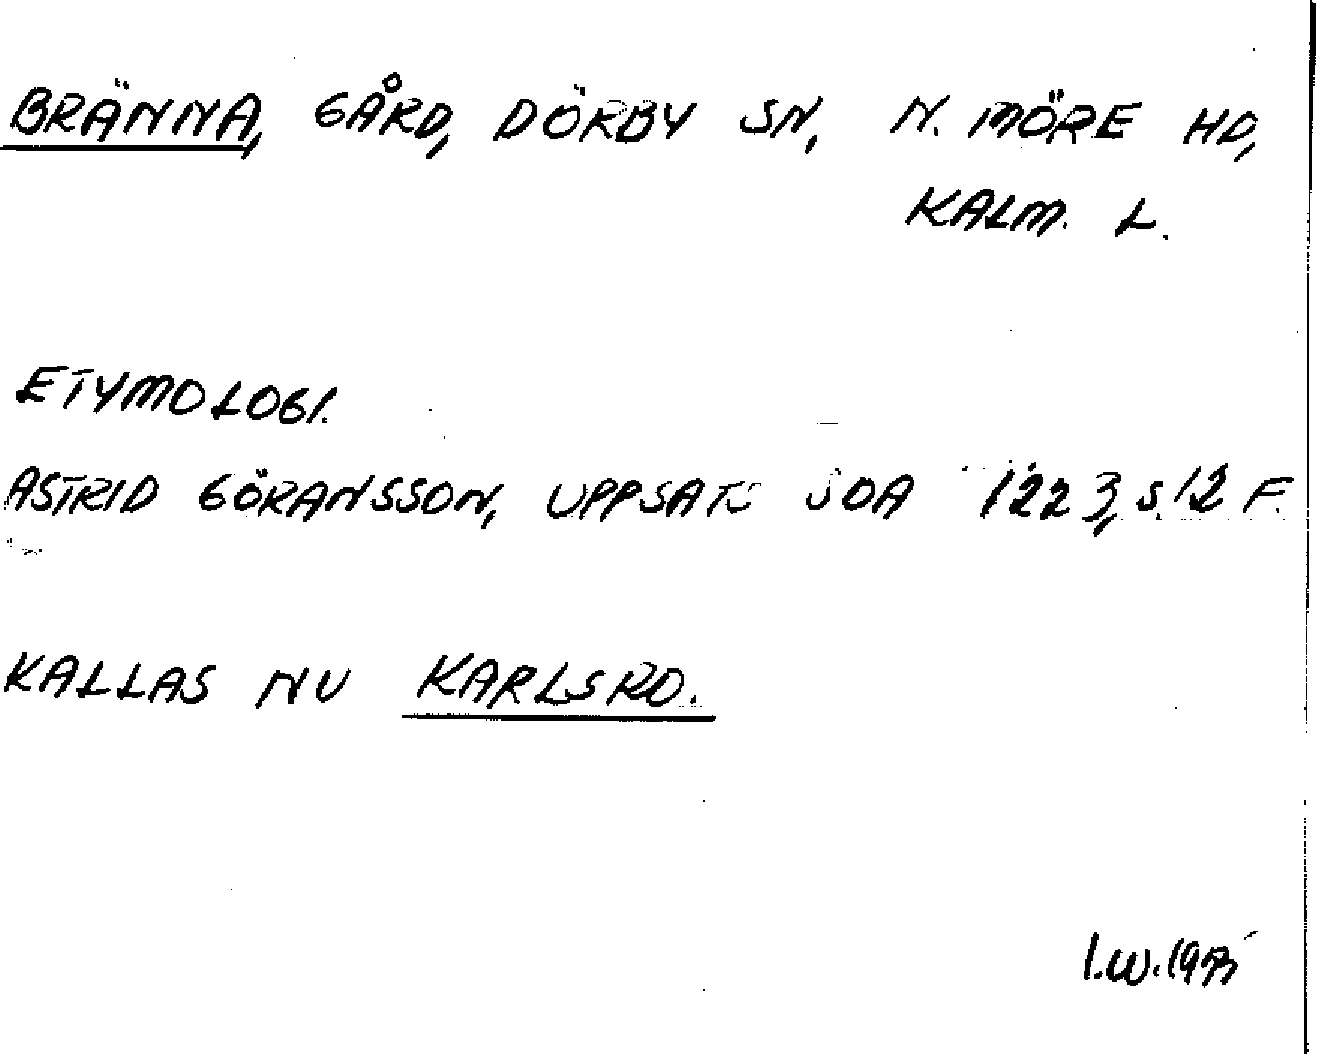 BRÄNNA, GÅRD, DÖRBY SN, N. MÖRE HD,
KALM. L.
ETYMOLOGI.
ASTRID GÖRANSSON, UPPSATS SOA 1223, S. 12 F.
KALLAS NU KARLSRO.
I.W.